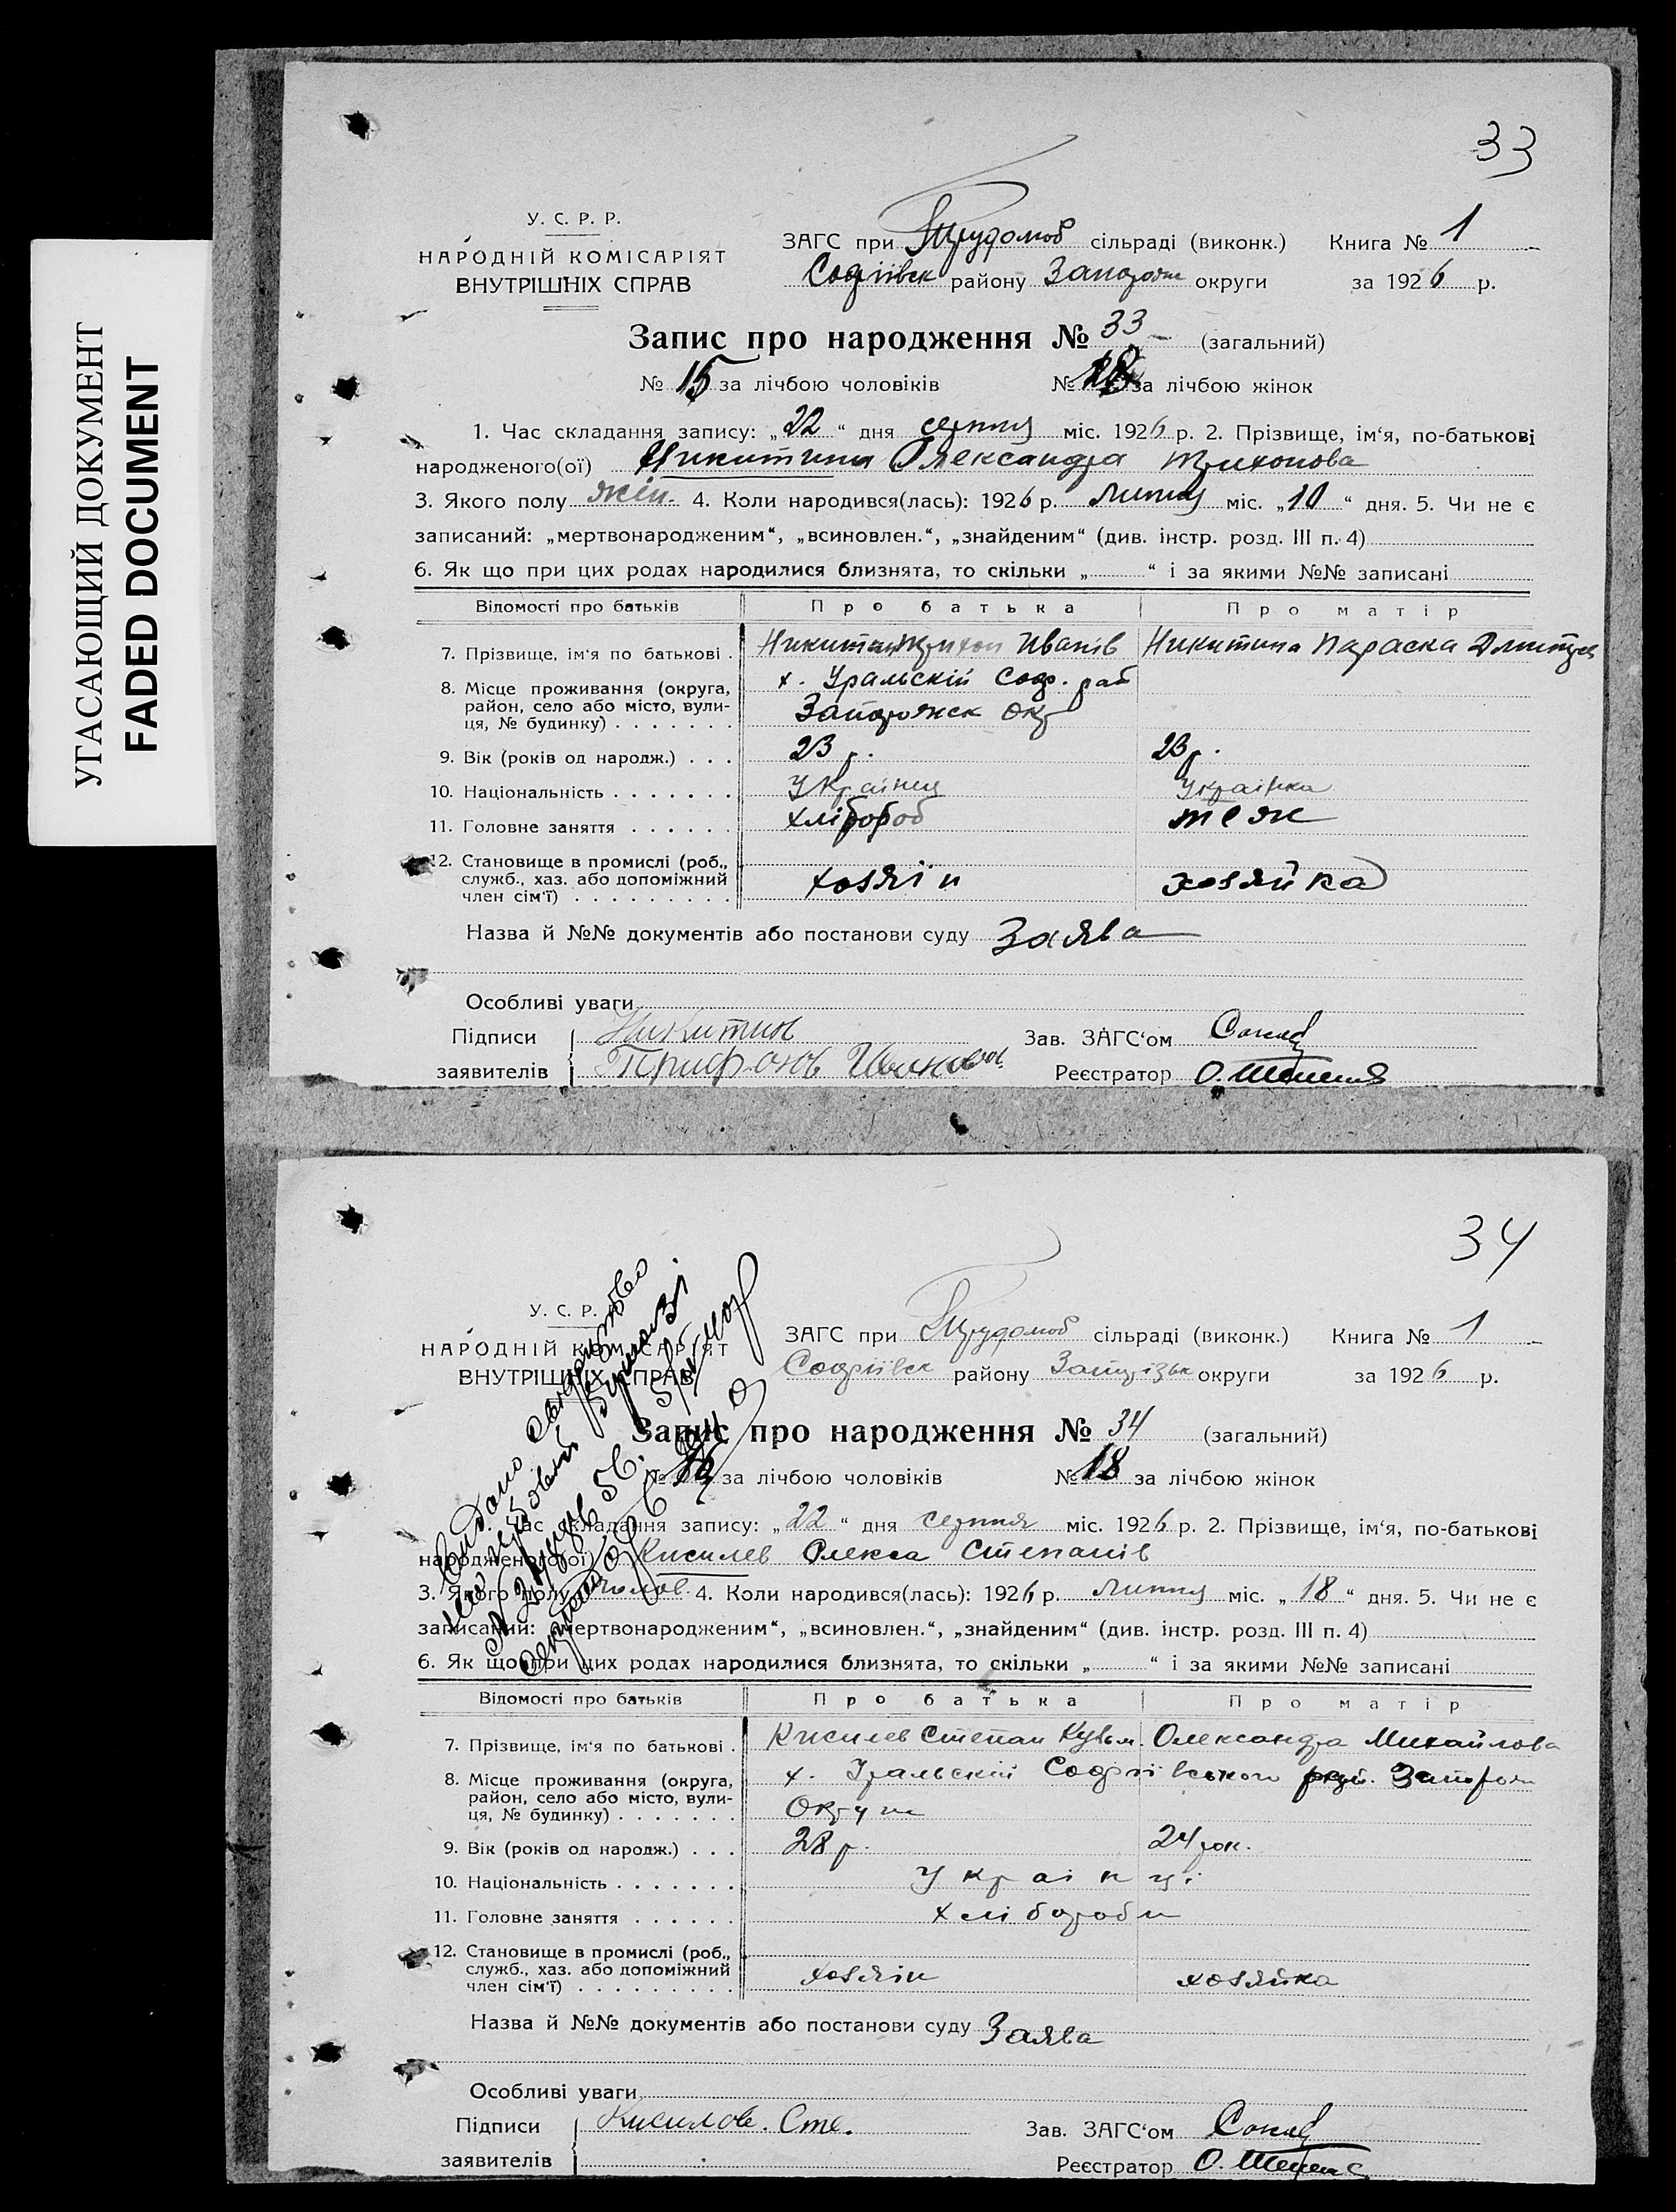 УГАСАЮЩИЙ ДОКУМЕНТ
FADED DOCUMENT
33
У. С. Р. Р.
НАРОДНІЙ КОМІСАРІЯТ
ВНУТРІШНІХ СПРАВ
ЗАГС при Трудолюб сільраді (виконк.) Книга № 1
Софіївск району Запорож округи за 1926 р.
Запис про народження № 33 (загальний)
№ 15 за лічбою чоловіків № 18 за лічбою жінок
1. Час складання запису: „22“ дня серпня міс. 1926 р. 2. Прізвище, ім‘я, по-батькові
народженого(ої) Никитина Олександра Трихонова
3. Якого полу жін. 4. Коли народився(лась): 1926 р. Липня міс. „10“ дня. 5. Чи не є
записаний: „мертвонародженим“, „всиновлен.“, „знайденим“ (див. інстр. розд. III п. 4)
6. Як що при цих родах народилися близнята, то скільки „ “ і за якими №№ записані
Відомості про батьків Про батька Про матір
7. Прізвище, ім‘я по батькові . Никитин Трихон Иванів Никитина Параска Дмитров
8. Місце проживання (округа, х. Уральскій Соф. рай
район, село або місто, вули-
ця, № будинку) . . . . . . . Запорожск окр
9. Вік (років од народж.) . . . 23 р. 23 р.
10. Національність . . . . . . . Українец Українка
11. Головне заняття . . . . . . хлібороб теж
12. Становище в промислі (роб.,
служб., хаз. або допоміжний хозяін хозяйка
член сім‘ї) . . . . . . . . .
Назва й №№ документів або постанови суду Заява
Особливі уваги
Підписи Никитин Зав. ЗАГС‘ом
заявителів Трифонъ Иванов Реєстратор О.
34
У. С. Р. Р.
НАРОДНІЙ КОМІСАРІЯТ
ВНУТРІШНІХ СПРАВ
ЗАГС при Трудолюб сільраді (виконк.) Книга № 1
Софіївск району Запорізьк округи за 1926 р.
Запис про народження № 34 (загальний)
№ 16 за лічбою чоловіків № 18 за лічбою жінок
1. Час складання запису: „22“ дня серпня міс. 1926 р. 2. Прізвище, ім‘я, по-батькові
народженого(ої) Кисилев Олекса Степанів
3. Якого полу чолов. 4. Коли народився(лась): 1926 р. Липня міс. „18“ дня. 5. Чи не є
записаний: „мертвонародженим“, „всиновлен.“, „знайденим“ (див. інстр. розд. III п. 4)
6. Як що при цих родах народилися близнята, то скільки „ “ і за якими №№ записані
Відомості про батьків Про батька Про матір
7. Прізвище, ім‘я по батькові . Кисилев Степан Кузьм. Олександра Михайлова
8. Місце проживання (округа, х. Уральскій Софіївського рай. Запорож
район, село або місто, вули-
ця, № будинку) . . . . . . . Округи
9. Вік (років од народж.) . . . 28 р. 24 рок.
10. Національність . . . . . . . Українці
11. Головне заняття . . . . . . хлібороби
12. Становище в промислі (роб.,
служб., хаз. або допоміжний хозяін хозяйка
член сім‘ї) . . . . . . . . .
Назва й №№ документів або постанови суду Заява
Особливі уваги
Підписи Кисилов. Сте. Зав. ЗАГС‘ом
заявителів Реєстратор О.